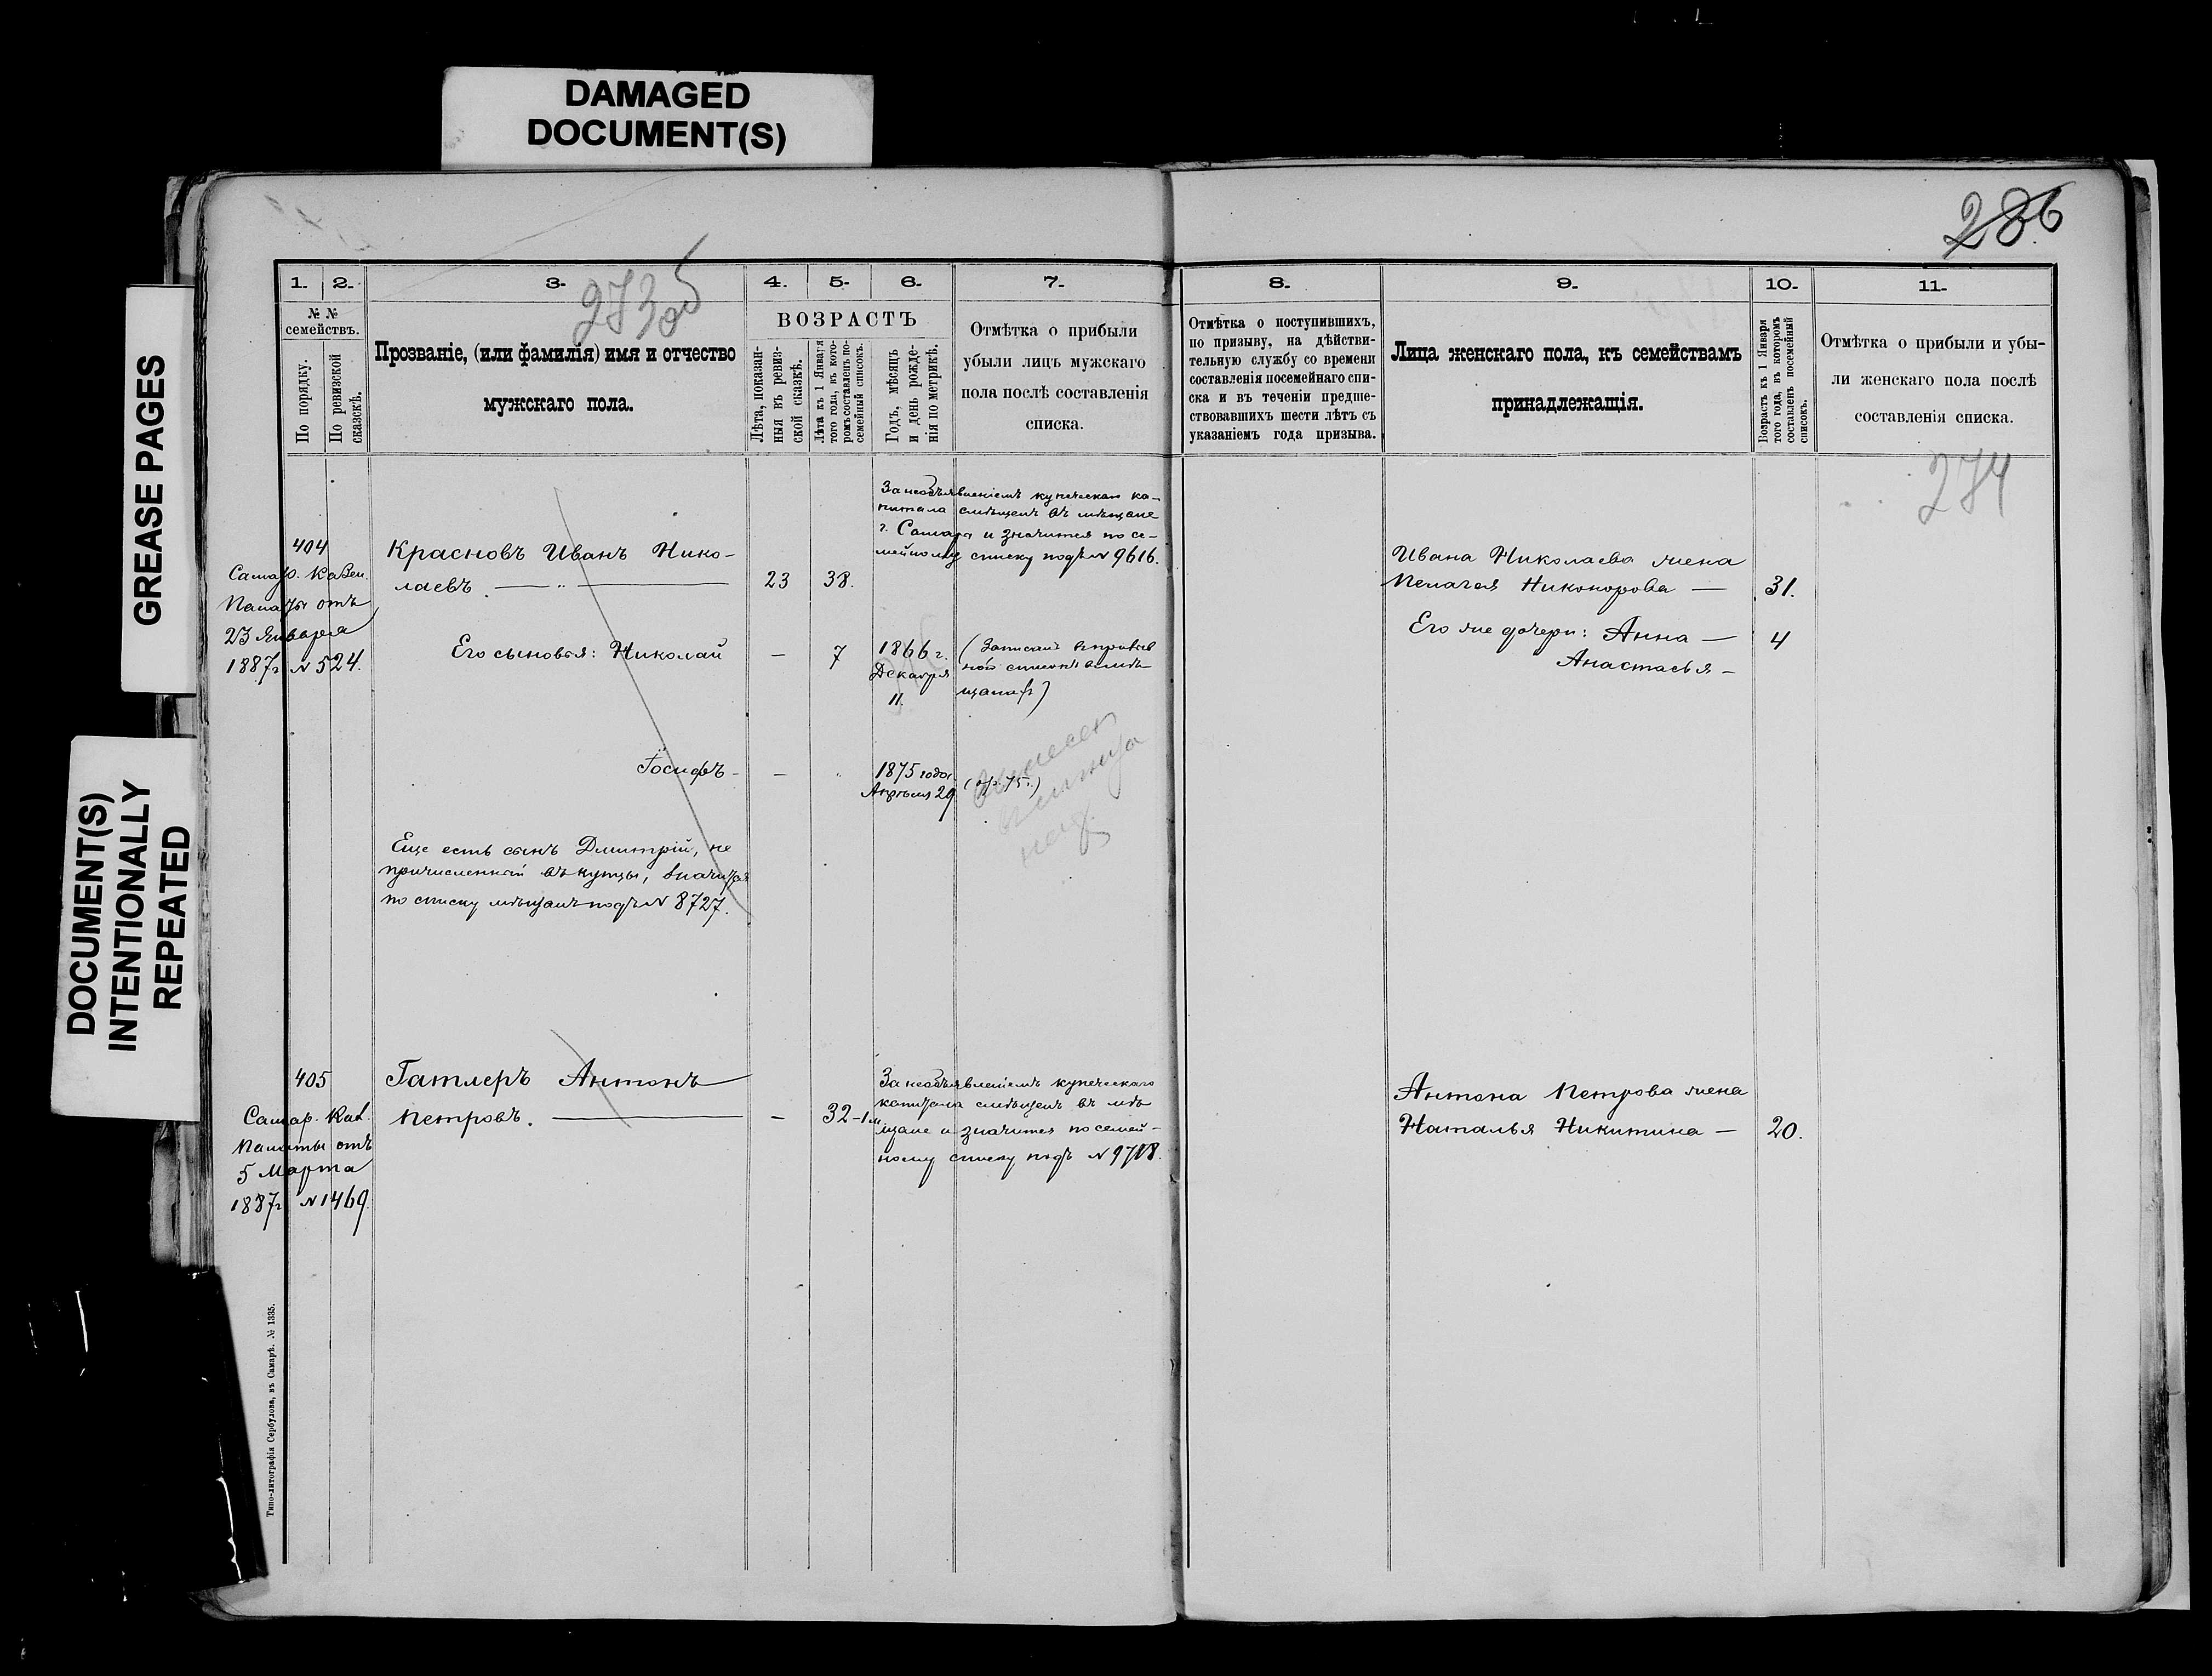 DAMAGED
DOCUMENT(S)
GREASE PAGES
DOCUMENT(S)
INTENTIONALLY
REPEATED
286
273 об
1. 2. 3. 4. 5. 6. 7.
№ №
семействъ.
По порядку.
По ревизской
сказкѣ.
Прозваніе, (или фамилія) имя и отчество
мужскаго пола.
ВОЗРАСТЪ
Лѣта, показан-
ныя въ ревиз-
ской сказкѣ.
Лѣта къ 1 Января
того года, въ кото-
ромъ составленъ по-
семейный списокъ.
Годъ, мѣсяцъ
и день рожде-
нія по метрикѣ.
Отмѣтка о прибыли
убыли лицъ мужскаго
пола послѣ составленія
списка.
404
Самар. Казен.
Палаты отъ
23 Января
1887г № 524.
Красновъ Иванъ Нико-
лаевъ. — " — 23 38.
За необъявленіемъ купческаго ка-
питала смѣщенъ въ мѣщане
г. Самары и значится по се-
мейному списку подъ № 9616.
Его сыновья: Николай — 7 1866 г.
Декабря
11.
(Записанъ
щанъ)
Іосифъ — — " 1875 года
Апрѣля 29 (75г.)
Еще есть сынъ Дмитрій, не
причисленный въ купцы, значится
по списку мѣщанъ подъ № 8727.
405
Самар. Каз.
Палаты отъ
5 Марта
1887г № 1469.
Гатлеръ Антонъ
Петровъ. — — 32-1м
За необъявленіемъ купеческаго
капитала смѣщенъ въ мѣ
щане и значится по семей-
ному списку подъ № 9718.
Типо-литографія Сербулова, въ Самарѣ. № 1335.
8. 9. 10. 11.
Отмѣтка о поступившихъ,
по призыву, на дѣйстви-
тельную службу со времени
составленія посемейнаго спи-
ска и въ теченіи предше-
ствовавшихъ шести лѣтъ съ
указаніемъ года призыва.
Лица женскаго пола, къ семействамъ
принадлежащія.
Возрастъ къ 1 Января
того года, въ которомъ
составленъ посемейный
списокъ.
Отмѣтка о прибыли и убы-
ли женскаго пола послѣ
составленія списка.
274
Ивана Николаева жена
Пелагея Никонорова — 31.
Его же дочери: Анна — 4
Анастасья —
Антона Петрова жена
Наталья Никитина — 20.